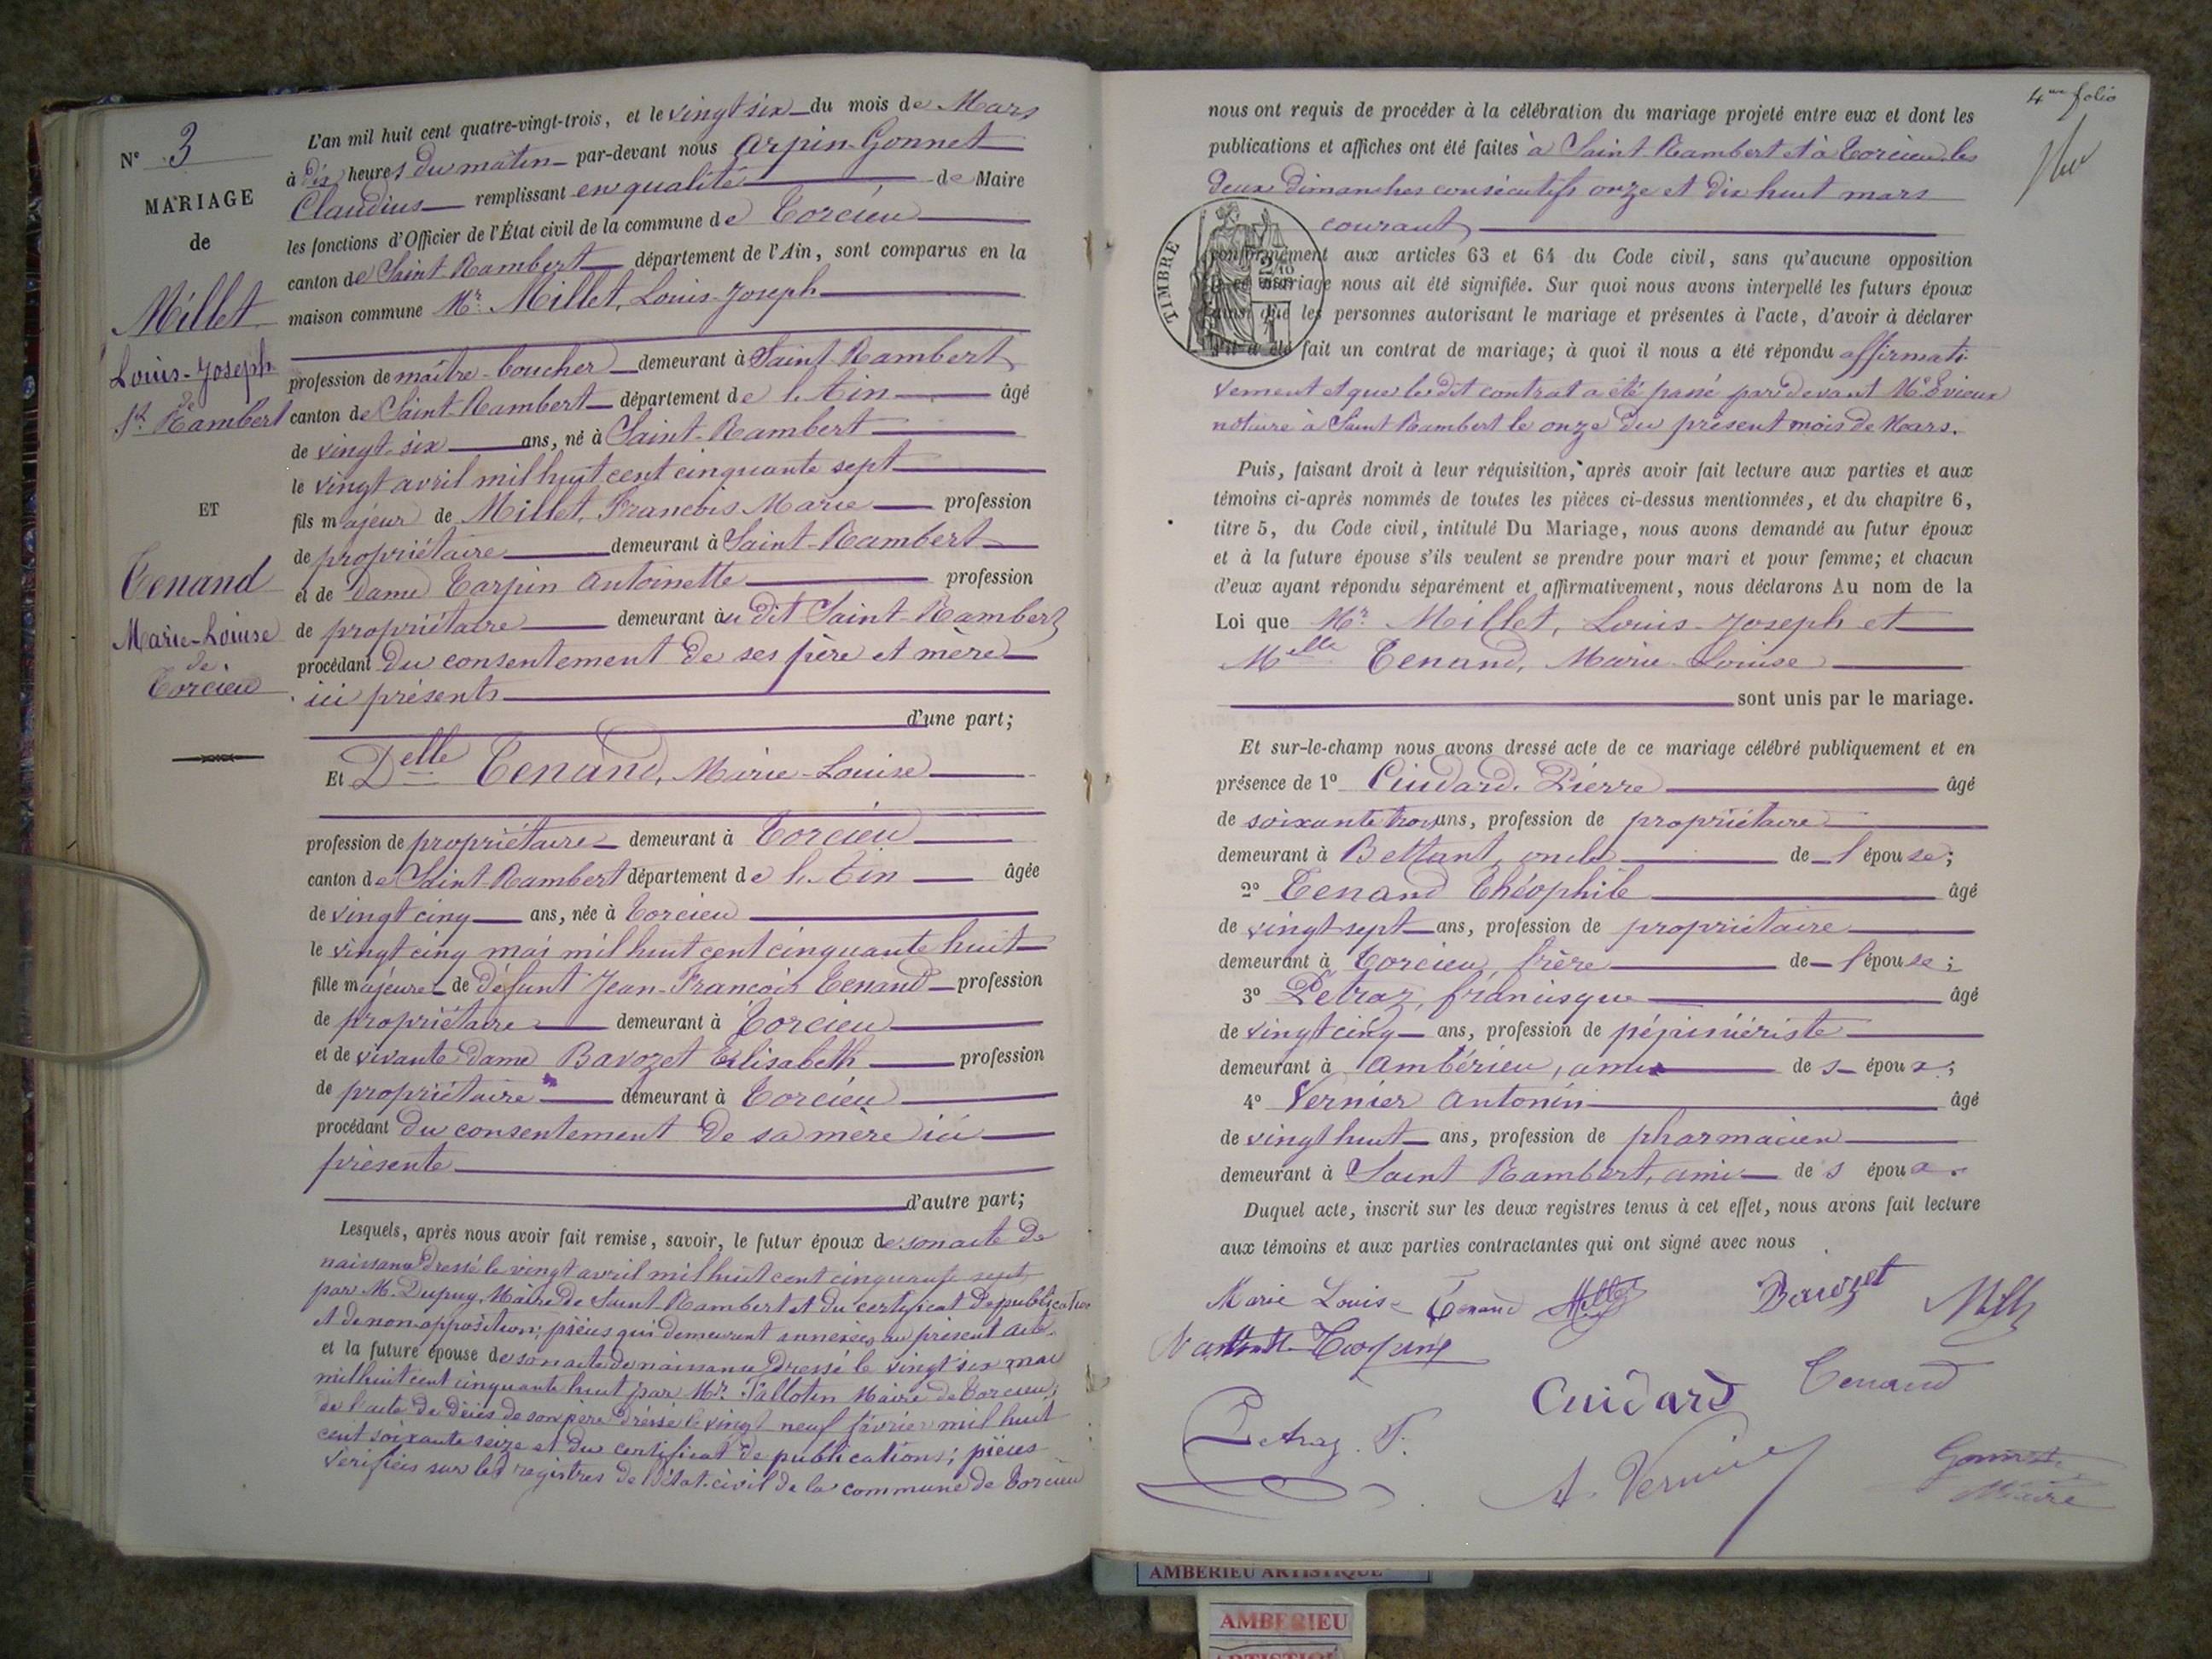 N° 3
MARIAGE
de
Millet
Louis-Joseph
de
St Rambert
ET
Tenand
Marie-Louise
de
Torcieu
L'an mil huit cent quatre-vingt-trois, et le vingt six du mois de Mars
à dix heures du matin par-devant nous Arpin-Gonnet
Claudius remplissant en qualité de Maire
les fonctions d'Officier de l'État civil de la commune de Torcieu
canton de Saint-Rambert département de l'Ain, sont comparus en la
maison commune Mr Millet, Louis-Joseph
profession de maître-boucher demeurant à Saint-Rambert
canton de Saint-Rambert département de l'Ain âgé
de vingt-six ans, né à Saint-Rambert
le vingt avril mil huit cent cinquante sept
fils majeur de Millet, François Marie profession
de propriétaire demeurant à Saint-Rambert
et de Dame Tarpin Antoinette profession
de propriétaire demeurant au dit Saint-Rambert
procédant du consentement de ses père et mère
ici présents
d'une part;
Et Delle Tenand, Marie-Louise
profession de propriétaire demeurant à Torcieu
canton de Saint-Rambert département de l'Ain âgée
de vingt cinq ans, née à Torcieu
le vingt cinq mai mil huit cent cinquante huit
fille majeure de défunt Jean-François Tenand profession
de propriétaire demeurant à Torcieu
et de vivante dame Bavozet Elisabeth profession
de propriétaire demeurant à Torcieu
procédant du consentement de sa mère ici
présente
d'autre part;
Lesquels, après nous avoir fait remise, savoir, le futur époux de son acte de
naissance dressé le vingt avril mil huit cent cinquante sept
par M. Dupuy, Maire de Saint-Rambert et du certificat de publication
et de non-opposition; pièces qui demeurent annexées au présent acte.
et la future épouse de son acte de naissance dressé le vingt six mai
mil huit cent cinquante huit par Mr Tallotin Maire de Torcieu;
de l'acte de décès de son père dressé le vingt neuf février mil huit
cent soixante seize et du certificat de publications; pièces
vérifiées sur les registres de l'état-civil de la commune de Torcieu
4me folio
nous ont requis de procéder à la célébration du mariage projeté entre eux et dont les
publications et affiches ont été faites à Saint-Rambert et à Torcieu les
deux dimanches consécutifs onze et dix huit mars
courant
TIMBRE
conformément aux articles 63 et 64 du Code civil, sans qu'aucune opposition
à ce mariage nous ait été signifiée. Sur quoi nous avons interpellé les futurs époux
ainsi que les personnes autorisant le mariage et présentes à l'acte, d'avoir à déclarer
s'il a été fait un contrat de mariage; à quoi il nous a été répondu affirmati-
vement et que le dit contrat a été passé par devant Me Evieux
notaire à Saint-Rambert le onze du présent mois de Mars.
Puis, faisant droit à leur réquisition, après avoir fait lecture aux parties et aux
témoins ci-après nommés de toutes les pièces ci-dessus mentionnées, et du chapitre 6,
titre 5, du Code civil, intitulé Du Mariage, nous avons demandé au futur époux
et à la future épouse s'ils veulent se prendre pour mari et pour femme; et chacun
d'eux ayant répondu séparément et affirmativement, nous déclarons Au nom de la
Loi que Mr Millet, Louis-Joseph et
Melle Tenand, Marie-Louise
sont unis par le mariage.
Et sur-le-champ nous avons dressé acte de ce mariage célébré publiquement et en
présence de 1° Cuidard Pierre âgé
de soixante trois ans, profession de propriétaire
demeurant à Bettant, oncle de l'épouse;
2° Tenand Théophile âgé
de vingt sept ans, profession de propriétaire
demeurant à Torcieu, frère de l'épouse;
3° Petraz, francisque âgé
de vingt cinq ans, profession de pépiniériste
demeurant à Ambérieu, ami de s époux;
4° Vernier Antonin âgé
de vingt huit ans, profession de pharmacien
demeurant à Saint Rambert, ami de s époux.
Duquel acte, inscrit sur les deux registres tenus à cet effet, nous avons fait lecture
aux témoins et aux parties contractantes qui ont signé avec nous
Marie Louise Tenand Millet Bavozet
Tarpin
Cuidard Tenand
Petraz. F.
A. Vernier
Gonnet
Maire
AMBERIEU ARTISTIQUE
AMBERIEU
ARTISTIQUE